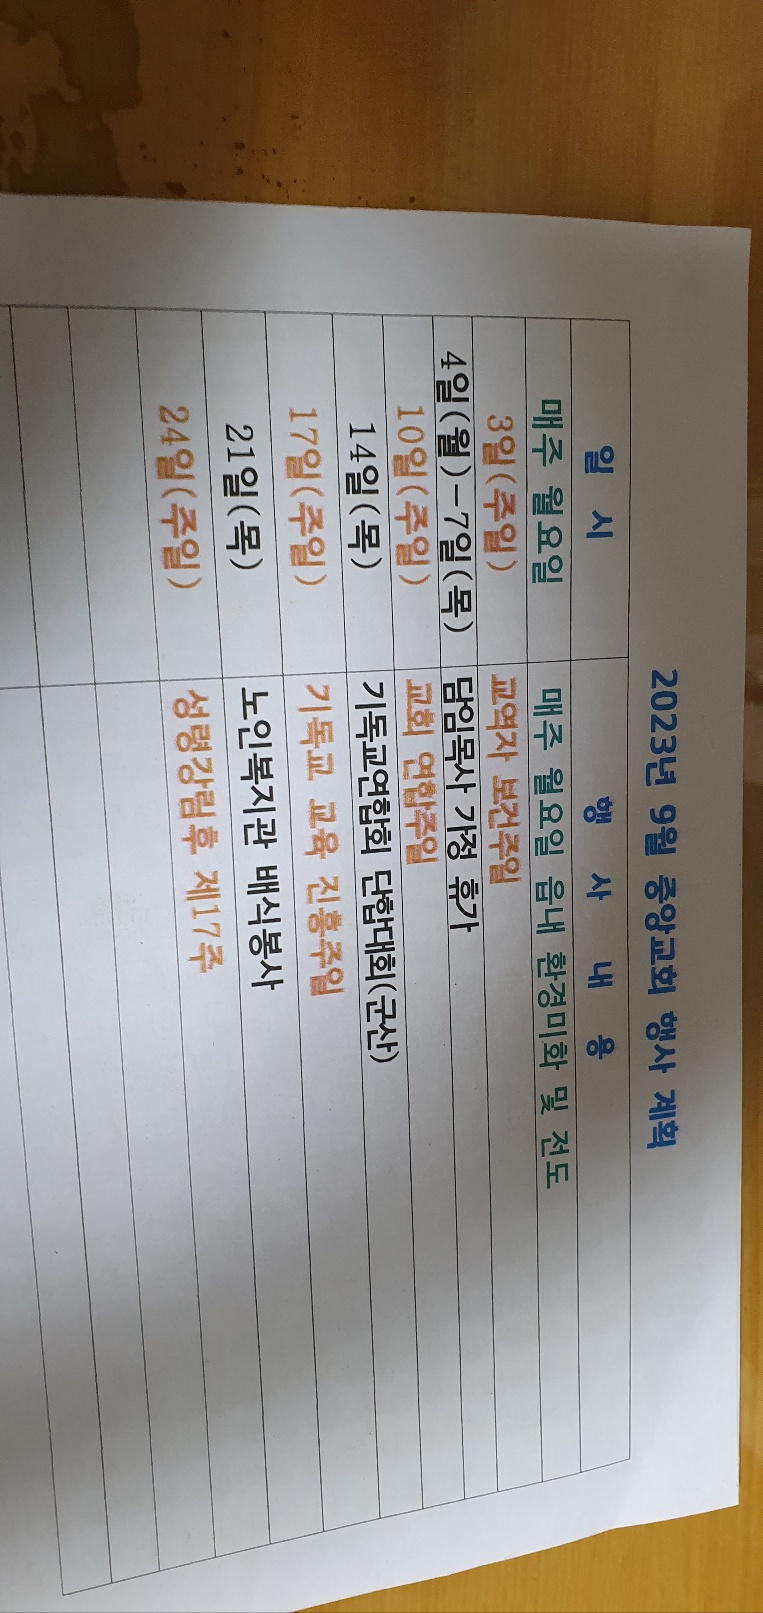 2023년 9월 중앙교회 행사 계획
일 시 행 사 내 용
매주 월요일 매주 월요일 읍내 환경미화 및 전도
3일(주일) 교역자 보건주일
4일(월)-7일(목) 담임목사 가정 휴가
10일(주일) 교회 연합주일
14일(목) 기독교연합회 단합대회(군산)
17일(주일) 기독교 교육 진흥주일
21일(목) 노인복지관 배식봉사
24일(주일) 성령강림후 제17주